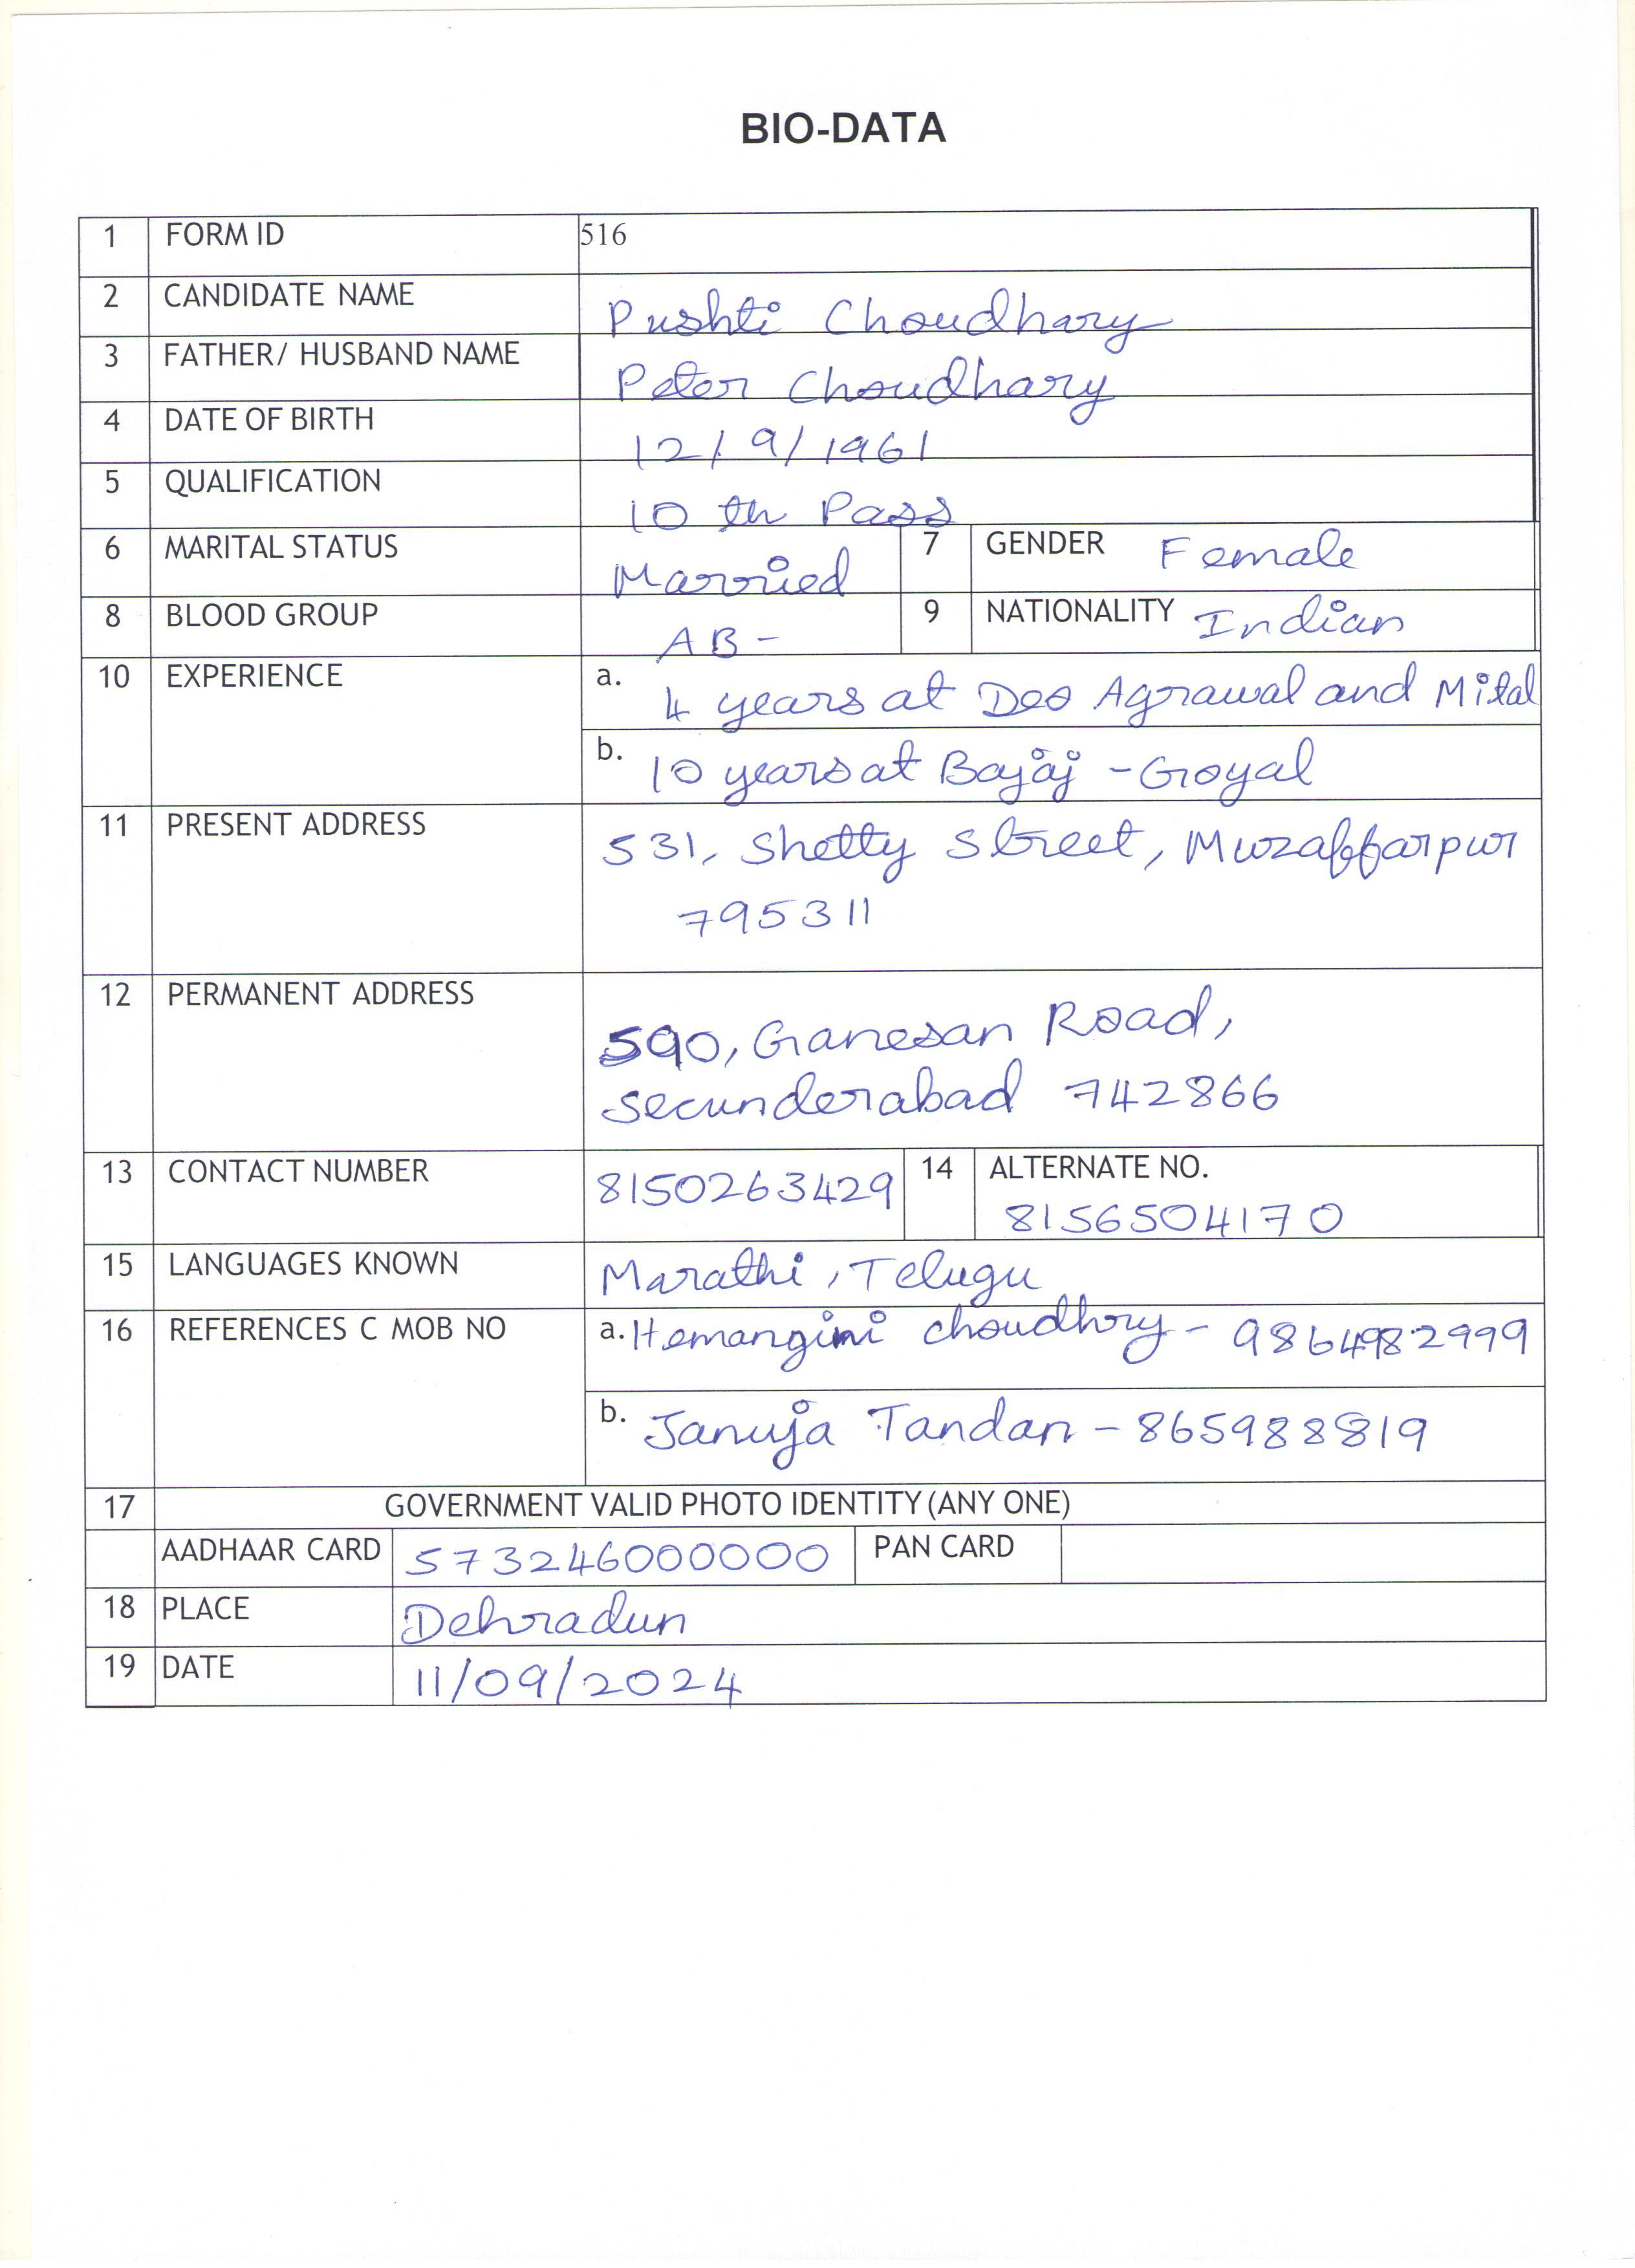 BIO-DATA
1 FORM ID 516
2 CANDIDATE NAME Pushti Choudhary
3 FATHER/ HUSBAND NAME Peter Choudhary
4 DATE OF BIRTH 12/9/1961
5 QUALIFICATION 10 th Pass
6 MARITAL STATUS Married 7 GENDER Female
8 BLOOD GROUP AB- 9 NATIONALITY Indian
10 EXPERIENCE a. 4 years at Deo Agrawal and Mital
b. 10 years at Bajaj - Goyal
11 PRESENT ADDRESS 531, Shetty Street, Muzaffarpur
795311
12 PERMANENT ADDRESS 590, Ganesan Road,
Secunderabad 742866
13 CONTACT NUMBER 8150263429 14 ALTERNATE NO.
8156504170
15 LANGUAGES KNOWN Marathi, Telugu
16 REFERENCES C MOB NO a. Hemangini Choudhry - 9864982999
b. Januja Tandan - 865988819
17 GOVERNMENT VALID PHOTO IDENTITY (ANY ONE)
AADHAAR CARD 573246000000 PAN CARD
18 PLACE Dehradun
19 DATE 11/09/2024